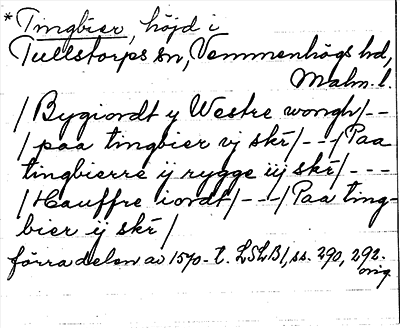 *Tingbier, höjd i
Tullstorps sn, Vemmenhögs hd,
Malm. l.
/Bygiordt y Westre wongh/--
/paa tingbier vj skr/---/Paa
tingbierre ij rygge iij skr/---
/Hauffre iordt/---/Paa ting-
bier ij skr/
förra delen av 1570-t. LSLB1, ss. 290, 292.
orig.